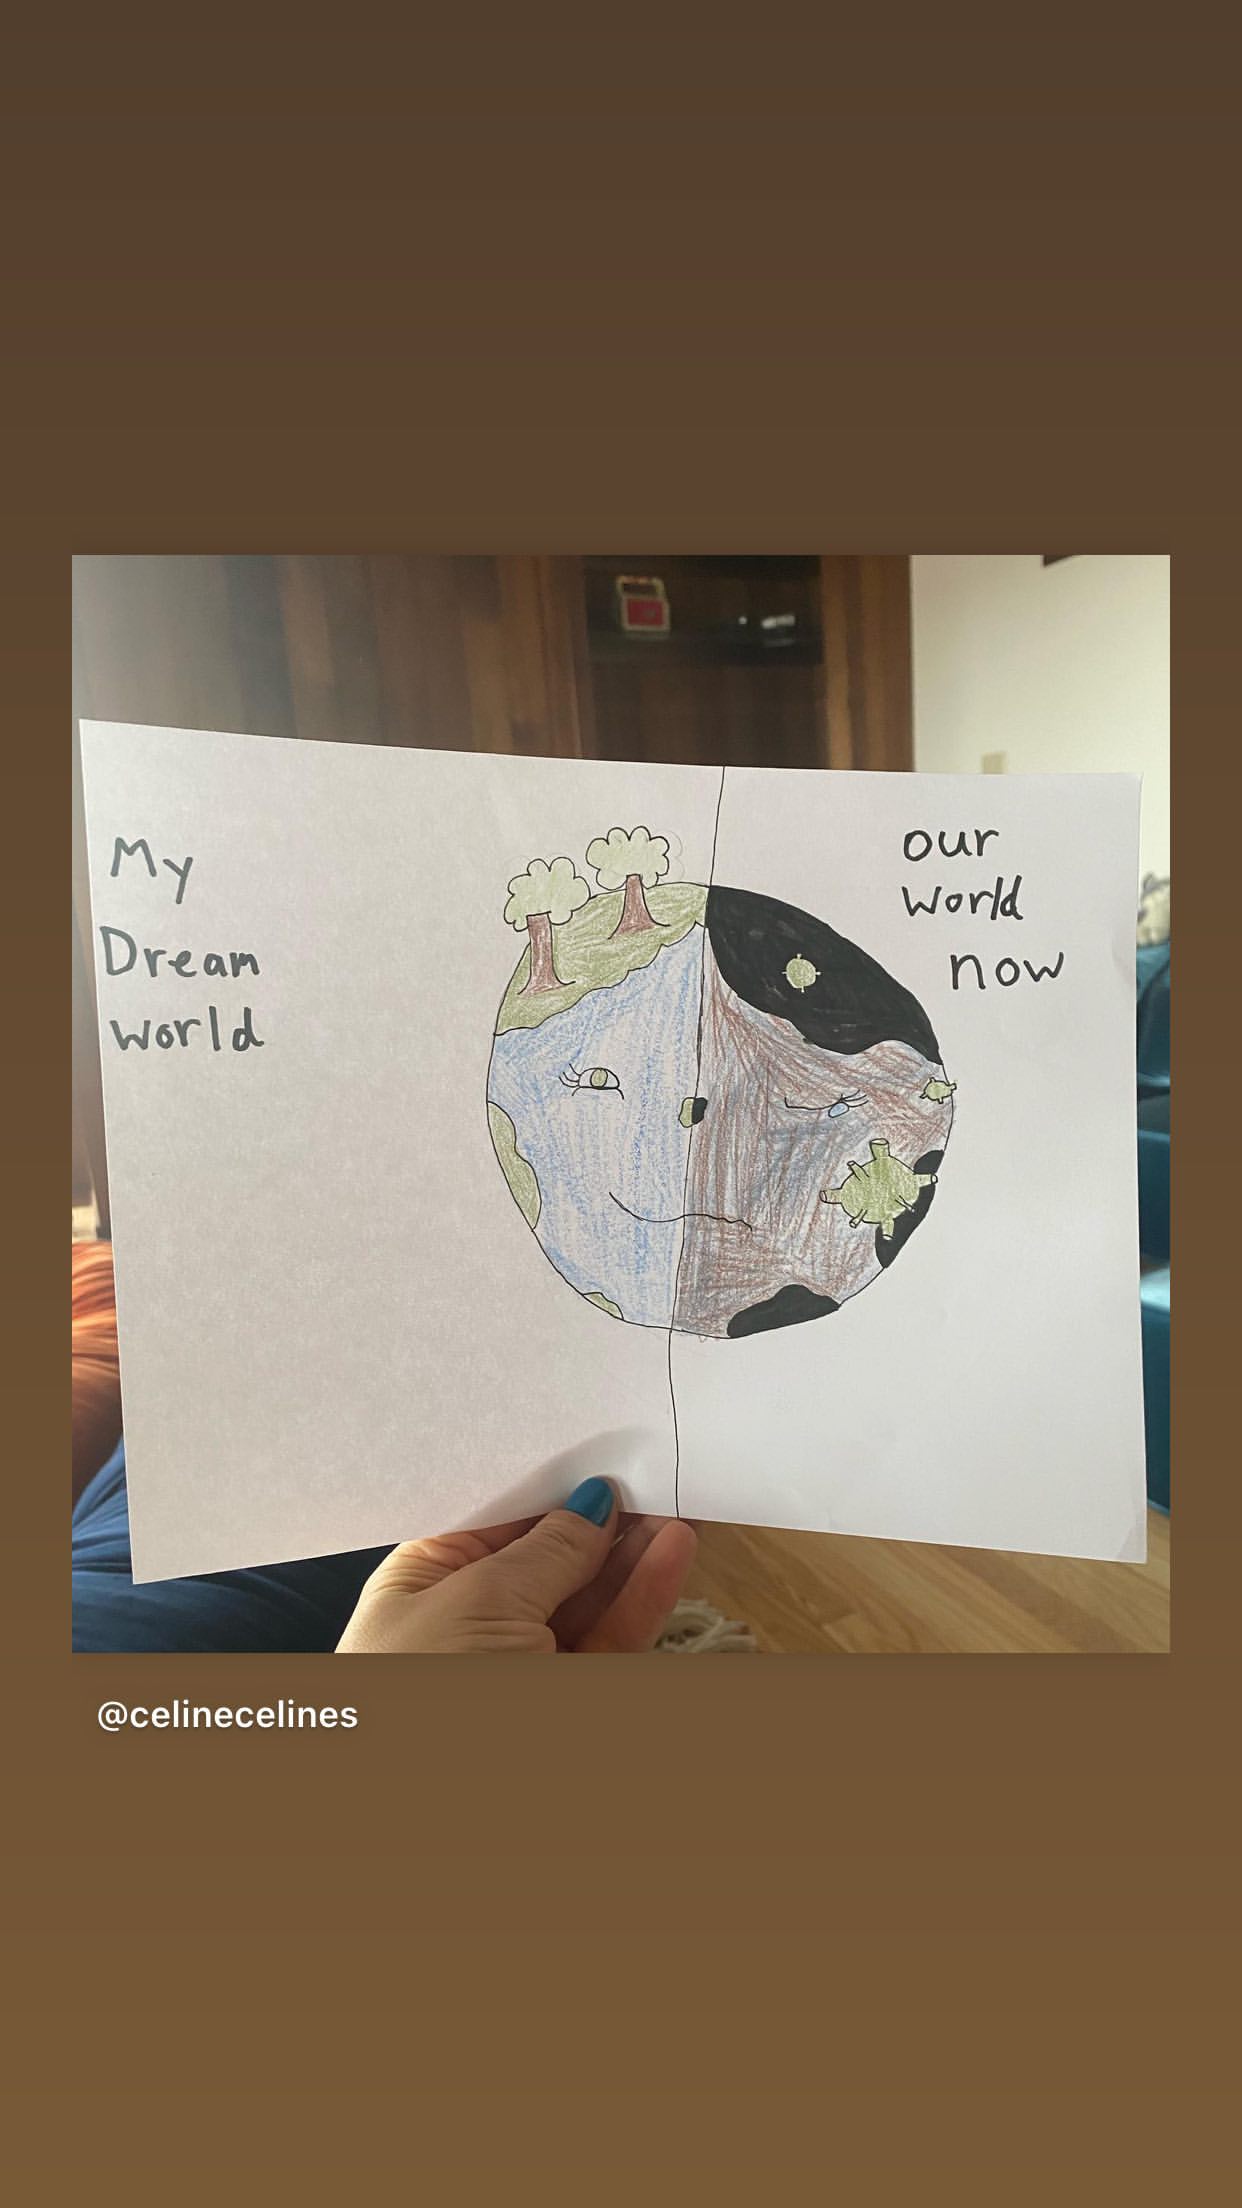 My
Dream
world
our
world
now
@celinecelines